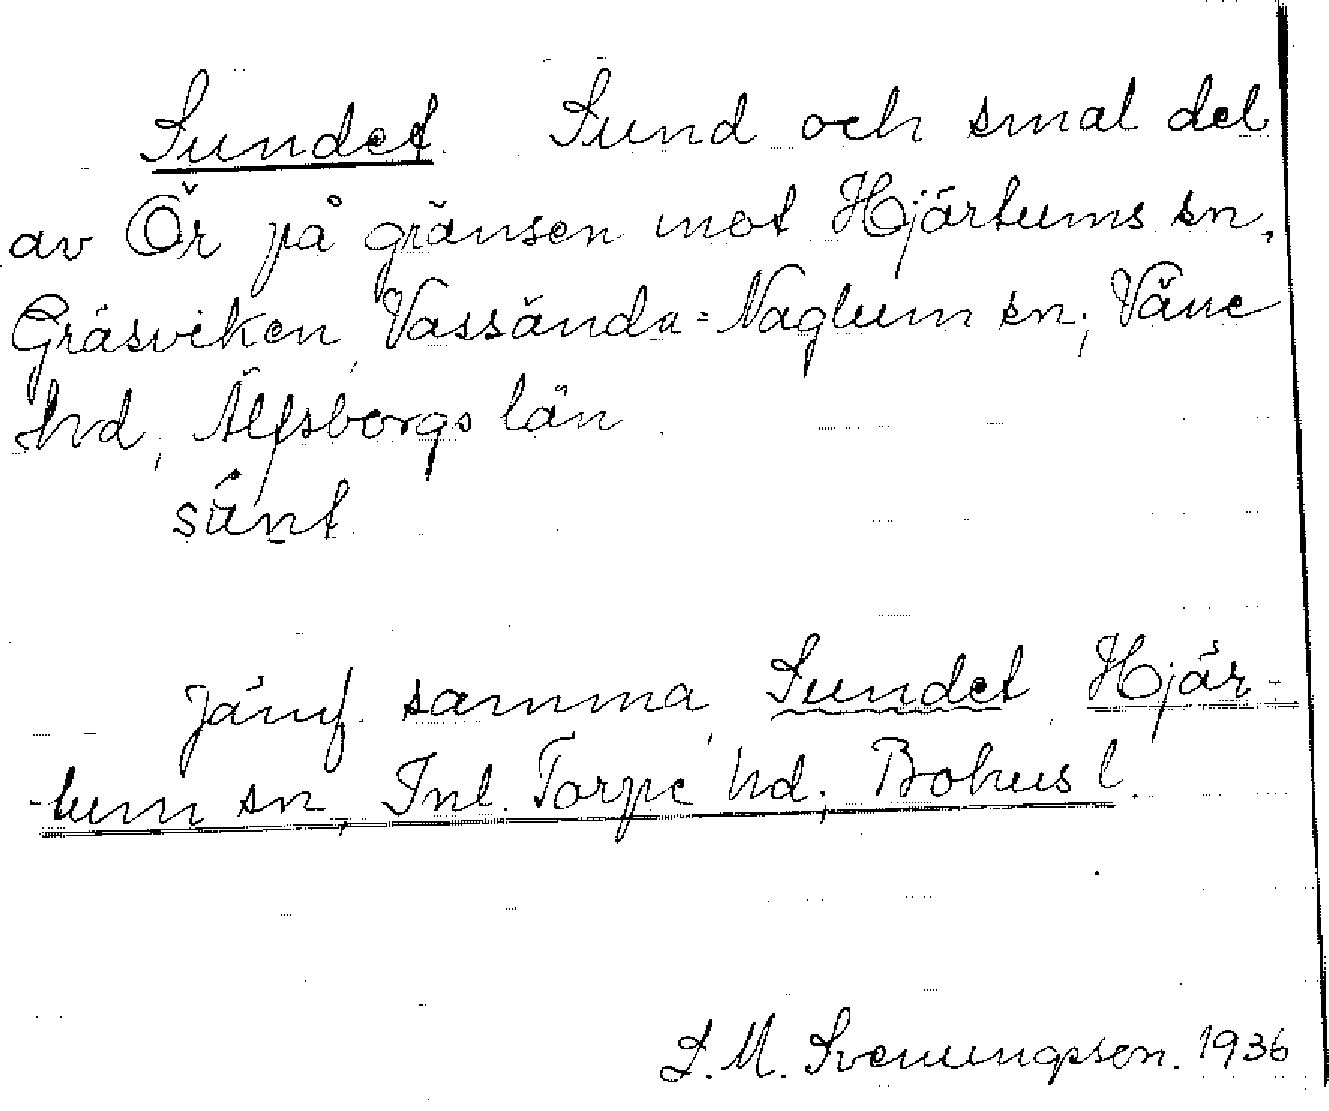 Sundet Sund och smal del
av Ör på gränsen mot Hjärtums sn,
Gräsviken, Vassända-Naglum sn; Väne
hd, Älfsborgs län
súnt
Jämf. samma, Sundet Hjär-
-tum sn, Inl. Torpe hd; Bohus l.
S. M. Svenungsson. 1936